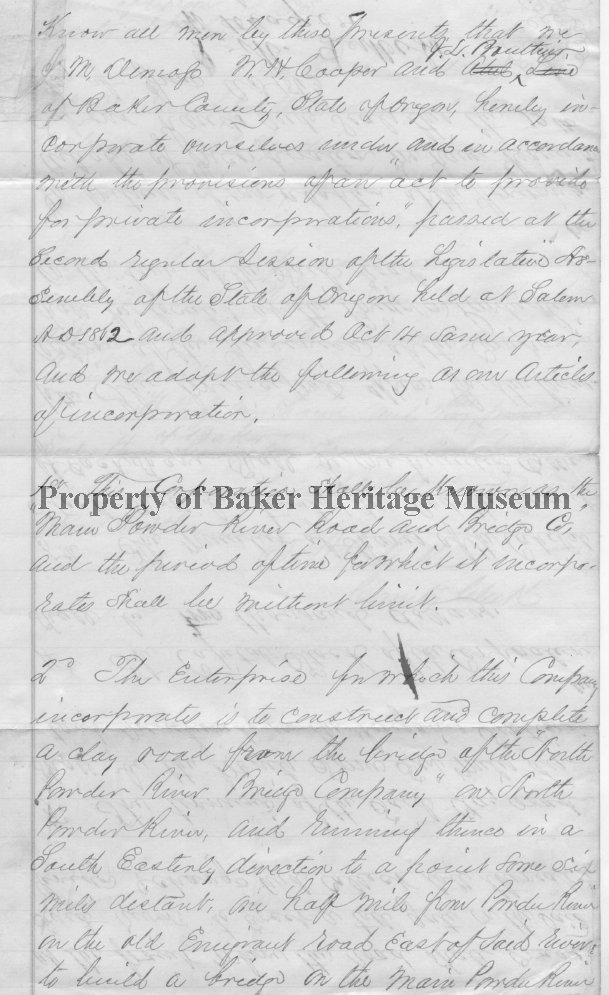 Know all men by these Presents that we
J. D. Boulter
J. M. Demoss W. H. Cooper and
of Baker County, State of Oregon, hereby in-
corporate ourselves under and in accordance
with the provisions of an "act to provide
for private incorporations," passed at the
Second regular Session of the Legislative As-
sembly of the State of Oregon held at Salem
AD 1862 and approved Oct 14 same year,
and we adopt the following as our Articles
of incorporation.
1st The Corporation shall be known as the
Property of Baker Heritage Museum
"Main Powder River Road and Bridge Co,"
and the period of time for which it incorpo-
rates shall be without limit.
2d The Enterprise for which this Company
incorporates is to construct and complete
a clay road from the bridge of the "North
Powder River Bridge Company" on North
Powder River, and running thence in a
South Easterly direction to a point some six
miles distant, one half mile from Powder River
on the old Emigrant road East of said river:
to build a bridge on the Main Powder River